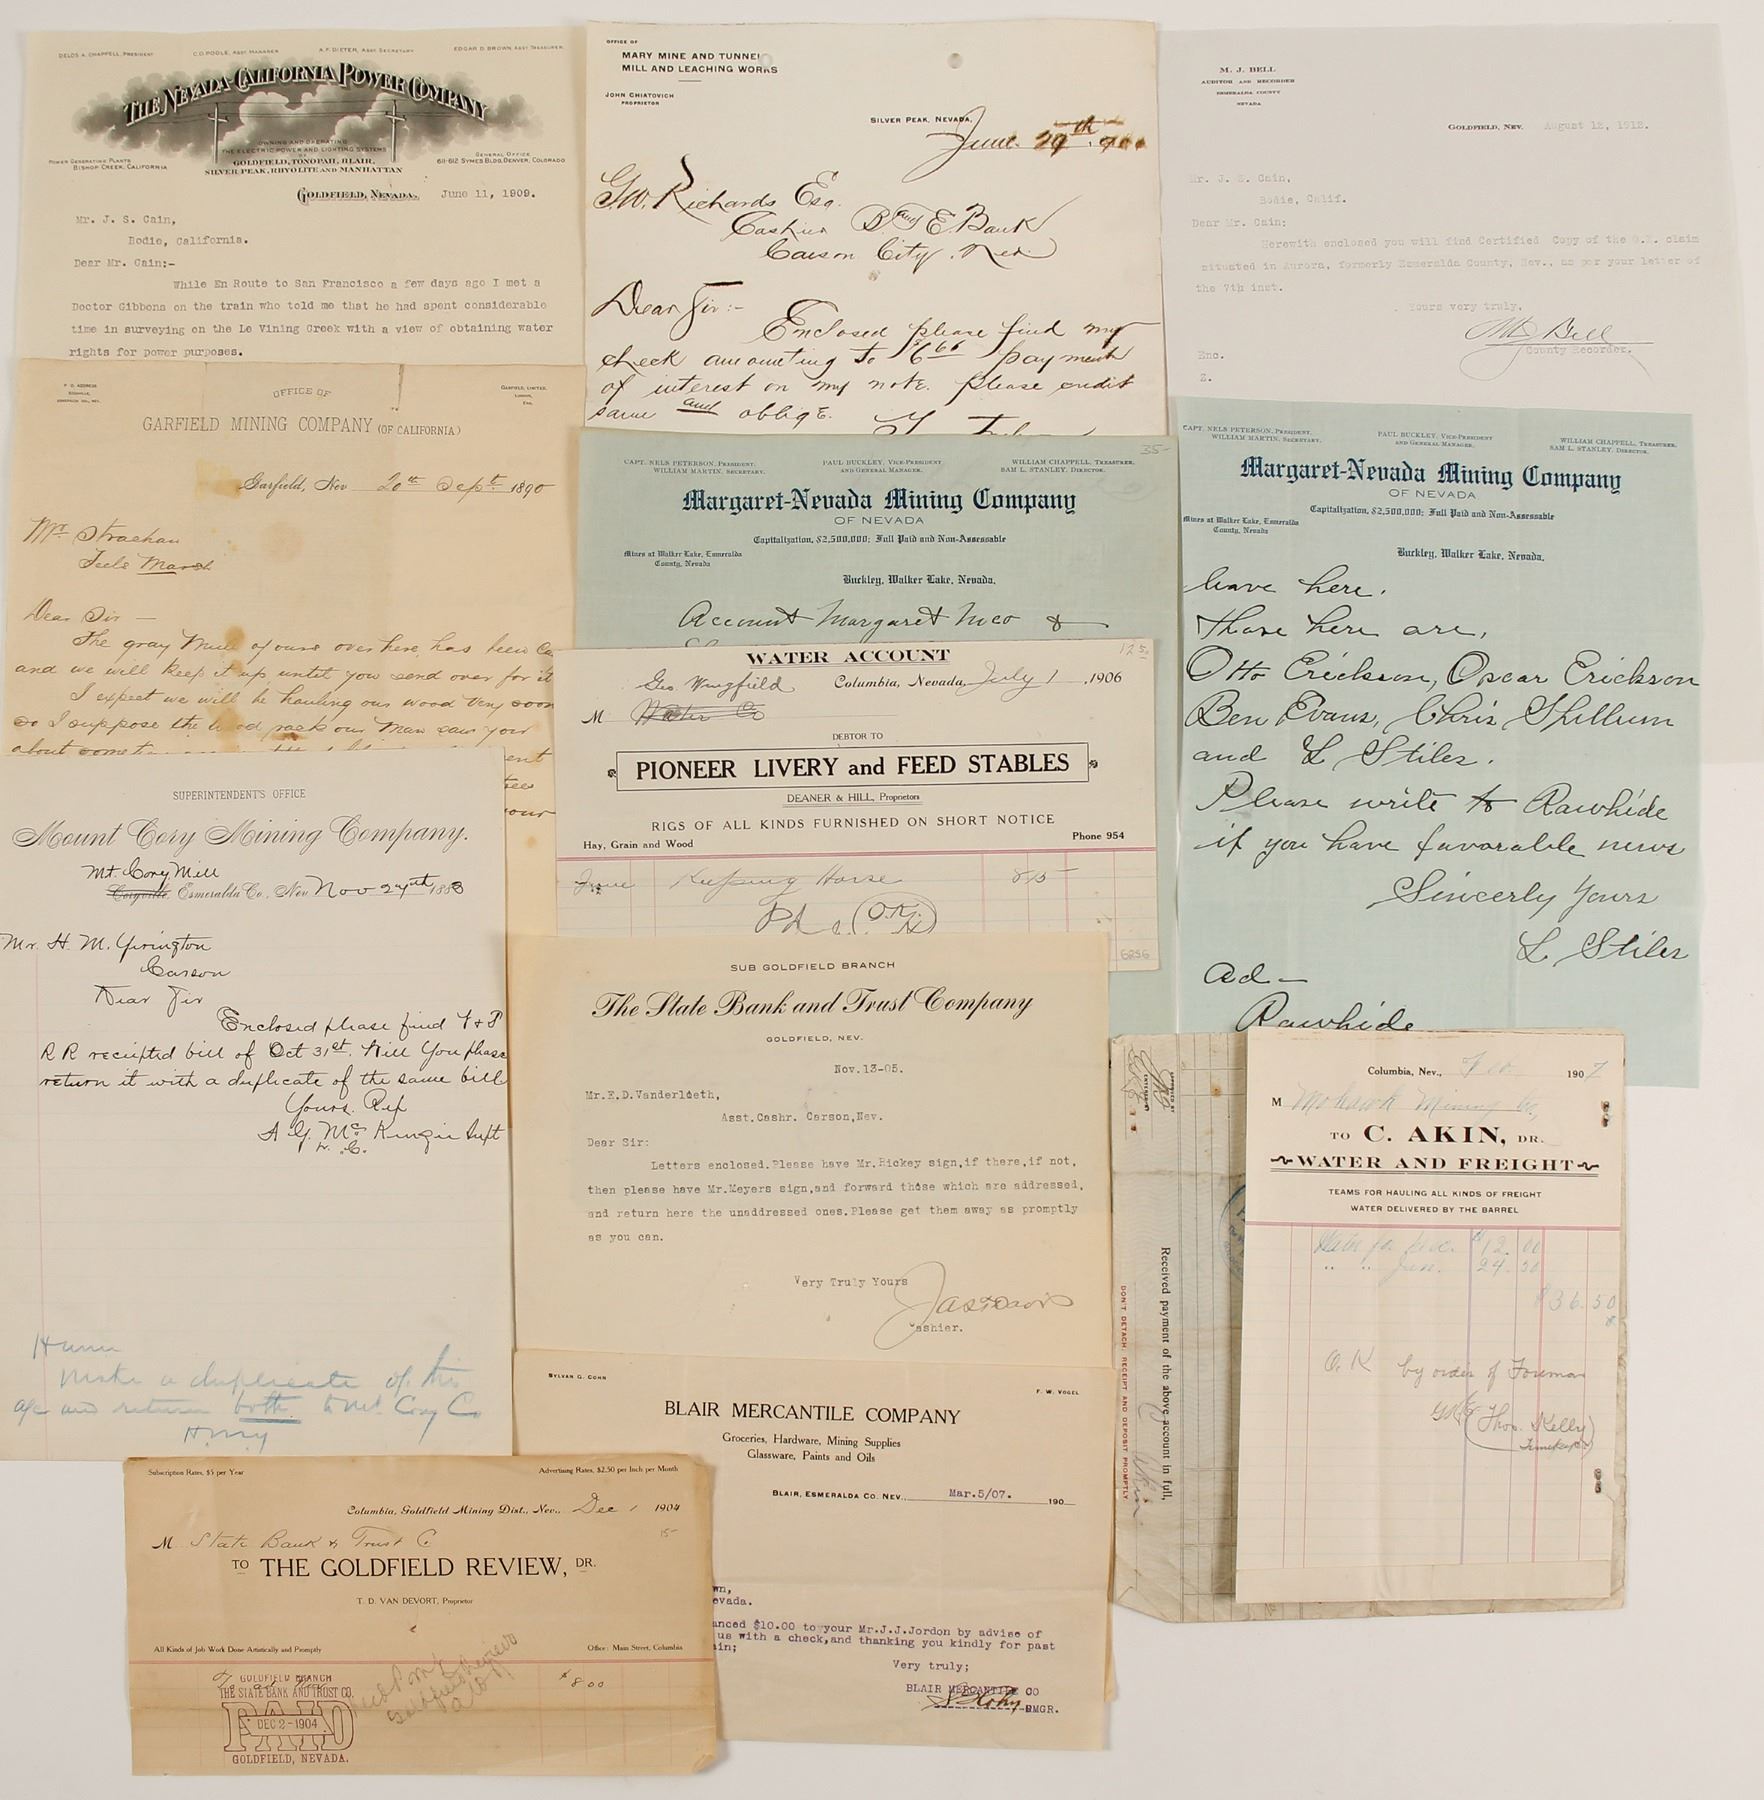 DELOS A. CHAPPELL, PRESIDENT C.O. POOLE, ASST. MANAGER A.F. DIETER, ASST. SECRETARY EDGAR D. BROWN, ASST. TREASURER.
THE NEVADA-CALIFORNIA POWER COMPANY
OWNING AND OPERATING
THE ELECTRIC POWER AND LIGHTING SYSTEMS
GOLDFIELD, TONOPAH, BLAIR,
SILVER PEAK, RHYOLITE AND MANHATTAN
POWER GENERATING PLANTS
BISHOP CREEK, CALIFORNIA
GENERAL OFFICE
611-612 SYMES BLDG. DENVER, COLORADO
GOLDFIELD, NEVADA, June 11, 1909.
Mr. J. S. Cain,
Bodie, California.
Dear Mr. Cain:-
While En Route to San Francisco a few days ago I met a
Doctor Gibbons on the train who told me that he had spent considerable
time in surveying on the Le Vining Creek with a view of obtaining water
rights for power purposes.
OFFICE OF
MARY MINE AND TUNNEL
MILL AND LEACHING WORKS
JOHN CHIATOVICH
PROPRIETOR
SILVER PEAK, NEVADA,
June 29th
G.W. Richards Esq.
Cashier B and E Bank
Carson City, Nev
Dear Sir:-
Enclosed please find my
check amounting to $6 66 payment
of interest on my note. please credit
same and oblige.
M. J. BELL
AUDITOR AND RECORDER
ESMERALDA COUNTY
NEVADA
GOLDFIELD, NEV. August 12, 1912.
Mr. J. S. Cain,
Bodie, Calif.
Dear Mr. Cain:
Herewith enclosed you will find Certified Copy of the O.K. claim
situated in Aurora, formerly Esmeralda County, Nev., as per your letter of
the 7th inst.
Yours very truly,
County Recorder.
Enc.
Z.
P. O. ADDRESS
OFFICE OF
GARFIELD, LIMITED,
LONDON,
ENG.
GARFIELD MINING COMPANY (OF CALIFORNIA)
Garfield, Nev 20th Sept. 1890
Mr Strachan
Teels Marsh
Dear Sir -
The gray Mule of yours over here, has been
and we will keep it up until you send over for it
I expect we will be hauling our wood very soon
so I suppose the wood rack our Man saw your
about
CAPT. NELS PETERSON, PRESIDENT. PAUL BUCKLEY, VICE-PRESIDENT WILLIAM CHAPPELL, TREASURER.
WILLIAM MARTIN, SECRETARY. AND GENERAL MANAGER. SAM L. STANLEY, DIRECTOR.
35-
Margaret-Nevada Mining Company
OF NEVADA
Capitalization, $2,500,000; Full Paid and Non-Assessable
Mines at Walker Lake, Esmeralda
County, Nevada
Buckley, Walker Lake, Nevada,
Account Margaret M co
CAPT. NELS PETERSON, PRESIDENT. PAUL BUCKLEY, VICE-PRESIDENT WILLIAM CHAPPELL, TREASURER.
WILLIAM MARTIN, SECRETARY. AND GENERAL MANAGER. SAM L. STANLEY, DIRECTOR.
Margaret-Nevada Mining Company
OF NEVADA
Capitalization, $2,500,000; Full Paid and Non-Assessable
Mines at Walker Lake, Esmeralda
County, Nevada
Buckley, Walker Lake, Nevada,
leave here.
Those here are,
Otto Erickson, Oscar Erickson
Ben Evans, Chris Shellum
and L Stiles.
Please write to Rawhide
if you have favorable news
Sincerly Yours
L Stiles
ad-
Rawhide
12 50
WATER ACCOUNT
Geo Wingfield Columbia, Nevada, July 1, 1906
M Water Co
DEBTOR TO
PIONEER LIVERY and FEED STABLES
DEANER & HILL, Proprietors
RIGS OF ALL KINDS FURNISHED ON SHORT NOTICE
Hay, Grain and Wood Phone 954
June Keeping Horse 815
O.K.
6256
SUPERINTENDENT'S OFFICE
Mount Cory Mining Company.
Mt. Cory Mill
Coryville, Esmeralda Co., Nev Nov 27th 1883
Mr. H. M. Yerington
Carson
Dear Sir
Enclosed please find
R R receipted bill of Oct 31st. Will You please
return it with a duplicate of the same bill
Yours. Rep
A G. McKenzie Supt
make a duplicate of this
and return both to Mt Cory Co
HMY
SUB GOLDFIELD BRANCH
The State Bank and Trust Company
GOLDFIELD, NEV.
Nov.13-05.
Mr.E.D.Vanderlieth,
Asst.Cashr. Carson,Nev.
Dear Sir:
Letters enclosed.Please have Mr.Rickey sign,if there,if not,
then please have Mr.Meyers sign,and forward those which are addressed,
and return here the unaddressed ones.Please get them away as promptly
as you can.
Very Truly Yours
Cashier.
Columbia, Nev., Feb 1907
M Mohawk Mining Co,
TO C. AKIN, DR.
WATER AND FREIGHT
TEAMS FOR HAULING ALL KINDS OF FREIGHT
WATER DELIVERED BY THE BARREL
Water for Dec. $12.00
" " Jan. 24.50
$36.50
O.K by order of Foreman
Thos. Kelly
Timekeeper
Received payment of the above account in full,
DON'T DETACH RECEIPT AND DEPOSIT PROMPTLY
SYLVAN G. COHN F. W. VOGEL
BLAIR MERCANTILE COMPANY
Groceries, Hardware, Mining Supplies
Glassware, Paints and Oils
BLAIR, ESMERALDA CO. NEV., Mar.5/07. 190
wn,
evada.
anced $10.00 to your Mr.J.J.Jordon by advise of
us with a check,and thanking you kindly for past
ain;
Very truly;
BLAIR MERCANTILE CO
MGR.
Subscription Rates, $5 per Year Advertising Rates, $2.50 per Inch per Month
Columbia, Goldfield Mining Dist., Nev., Dec 1 1904
15-
M State Bank & Trust Co
TO THE GOLDFIELD REVIEW, DR.
T. D. VAN DEVORT, Proprietor
All Kinds of Job Work Done Artistically and Promptly Office: Main Street, Columbia
$8 00
GOLDFIELD BRANCH
THE STATE BANK AND TRUST CO.
PAID
DEC 2-1904
GOLDFIELD, NEVADA.